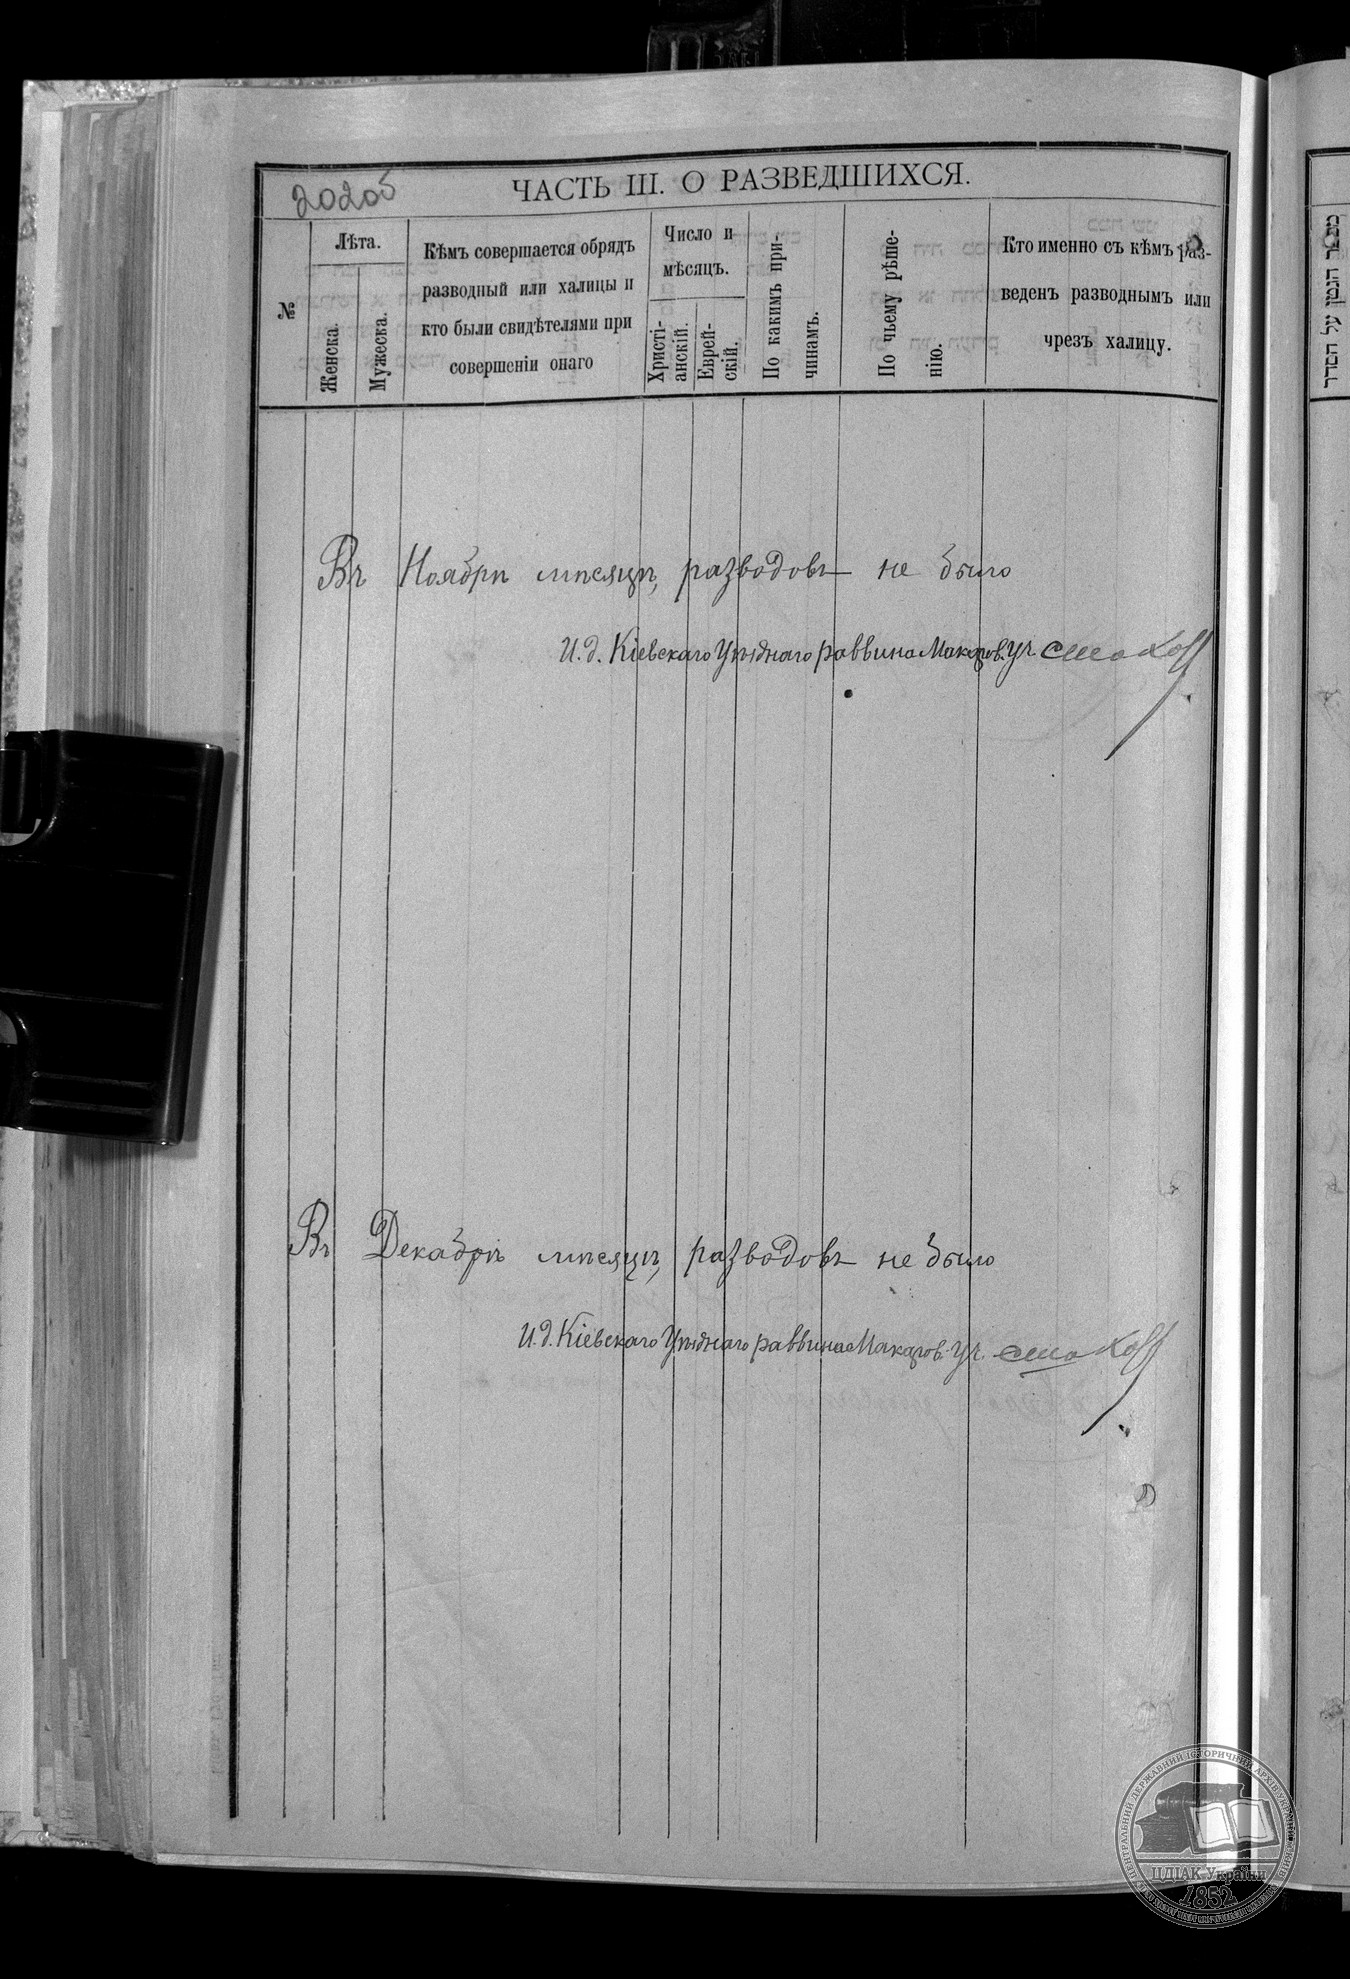 2020б
ЧАСТЬ III. О РАЗВЕДШИХСЯ.
№
Лѣта.
Женска.
Мужеска.
Кѣмъ совершается обрядъ
разводный или халицы и
кто были свидѣтелями при
совершеніи онаго
Число и
мѣсяцъ.
Христі-
анскій.
Еврей-
скій.
По какимъ при-
чинамъ.
По чьему рѣше-
нію.
Кто именно съ кѣмъ раз-
веденъ разводнымъ или
чрезъ халицу.
Въ Ноябрѣ мѣсяцѣ, разводовъ не было
И. д. Кіевскаго Уѣзднаго раввина Макаров. Уч.
Въ Декабрѣ мѣсяцѣ, разводовъ не было
И. д. Кіевскаго Уѣзднаго раввина Макаров. Уч.
ЦЕНТРАЛЬНИЙ ДЕРЖАВНИЙ ІСТОРИЧНИЙ АРХІВ УКРАЇНИ
ЦДІАК України
1852